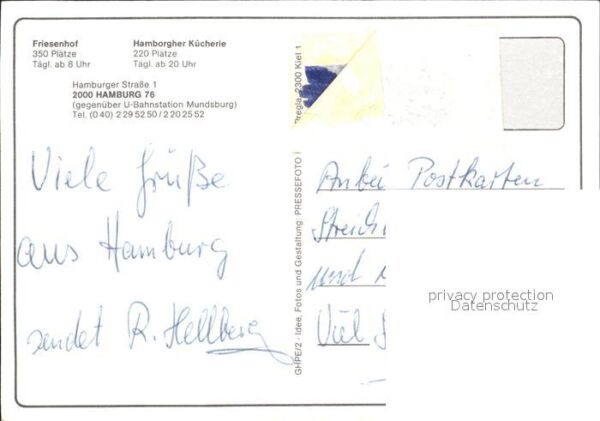 Friesenhof
350 Plätze
Tägl. ab 8 Uhr
Hamborgher Kücherie
220 Plätze
Tägl. ab 20 Uhr
Hamburger Straße 1
2000 HAMBURG 76
(gegenüber U-Bahnstation Mundsburg)
Tel. (0 40) 2 29 52 50 / 2 20 25 52
Viele Grüße
aus Hamburg
sendet R. Hellberg
GHPE/2 - Idee, Fotos und Gestaltung: PRESSEFOTO
2300 Kiel 1
Anbei Postkarten
und
Viel
privacy protection
Datenschutz